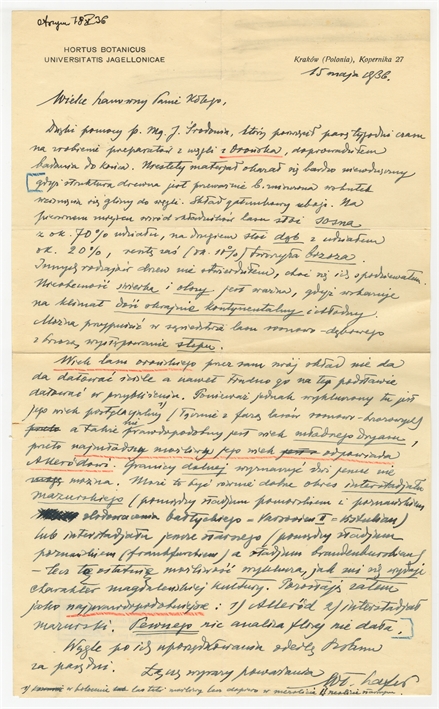 Otrzym 18 V 36
HORTUS BOTANICUS
UNIVERSITATIS JAGELLONICAE
Kraków (Polonia), Kopernika 27
15 maja 1936.
Wielce Szanowny Panie Kolego,
Dzięki pomocy p. Mg. J. Środonia, który poświęcił parę tygodni czasu
na zrobienie preparatów z węgli z Orońska, doprowadziłem
badania do końca. Niestety materjał okazał się bardzo niewdzięczny
gdyż struktura drewna jest przeważnie b. zniszczona wskutek
się gliny do węgli. Skład gatunkowy ubogi. Na
pierwszem miejscu wśród składników lasu stoi sosna
z ok. 70% udziału, na drugiem stoi dąb z udziałem
ok. 20%, resztę zaś (ok. 10%) tworzyła brzoza.
Innych rodzajów drzew nie stwierdziłem, choć się ich spodziewałem.
Nieobecność świerka i olchy jest ważna, gdyż wskazuje
na klimat dość skrajnie kontynentalny i chłodny.
Można przypuścić w sąsiedztwie lasu sosnowo-dębowego
z brzozą występowanie stepu.
Wiek lasu orońskiego przez sam mój skład nie da
da datować ściśle a nawet trudno go na tej podstawie
datować w przybliżeniu. Ponieważ jednak wykluczony tu jest
jego wiek postglacjalny (łącznie z fazą lasów sosnowo-brzozowych)
a także nieprawdopodobny jest wiek młodszego dryasu,
przeto najmłodszy możliwy jego wiek odpowiada
Allerödowi. Granicy dolnej wyznaczyć dziś jeszcze nie
można. Może to być równie dobrze okres interstadjału
mazurskiego (pomiędzy stadjum pomorskiem i poznańskiem
zlodowacenia bałtyckiego = Varsovien II =
lub interstadjału jeszcze starszego (pomiędzy stadjum
poznańskiem (frankfurckiem) a stadjum brandenburskiem)
– lecz tę ostatnią możliwość wyklucza, jak mi się wydaje
charakter magdaleńskiej kultury. Pozostają zatem
jako najprawdopodobniejsze: 1) Alleröd 2) interstadjał
mazurski. Pewnego nic analiza flory nie dała.
Węgle po ich uporządkowaniu odeślę Panu
za parę dni.
Łączę wyrazy poważania
Wł. Szafer